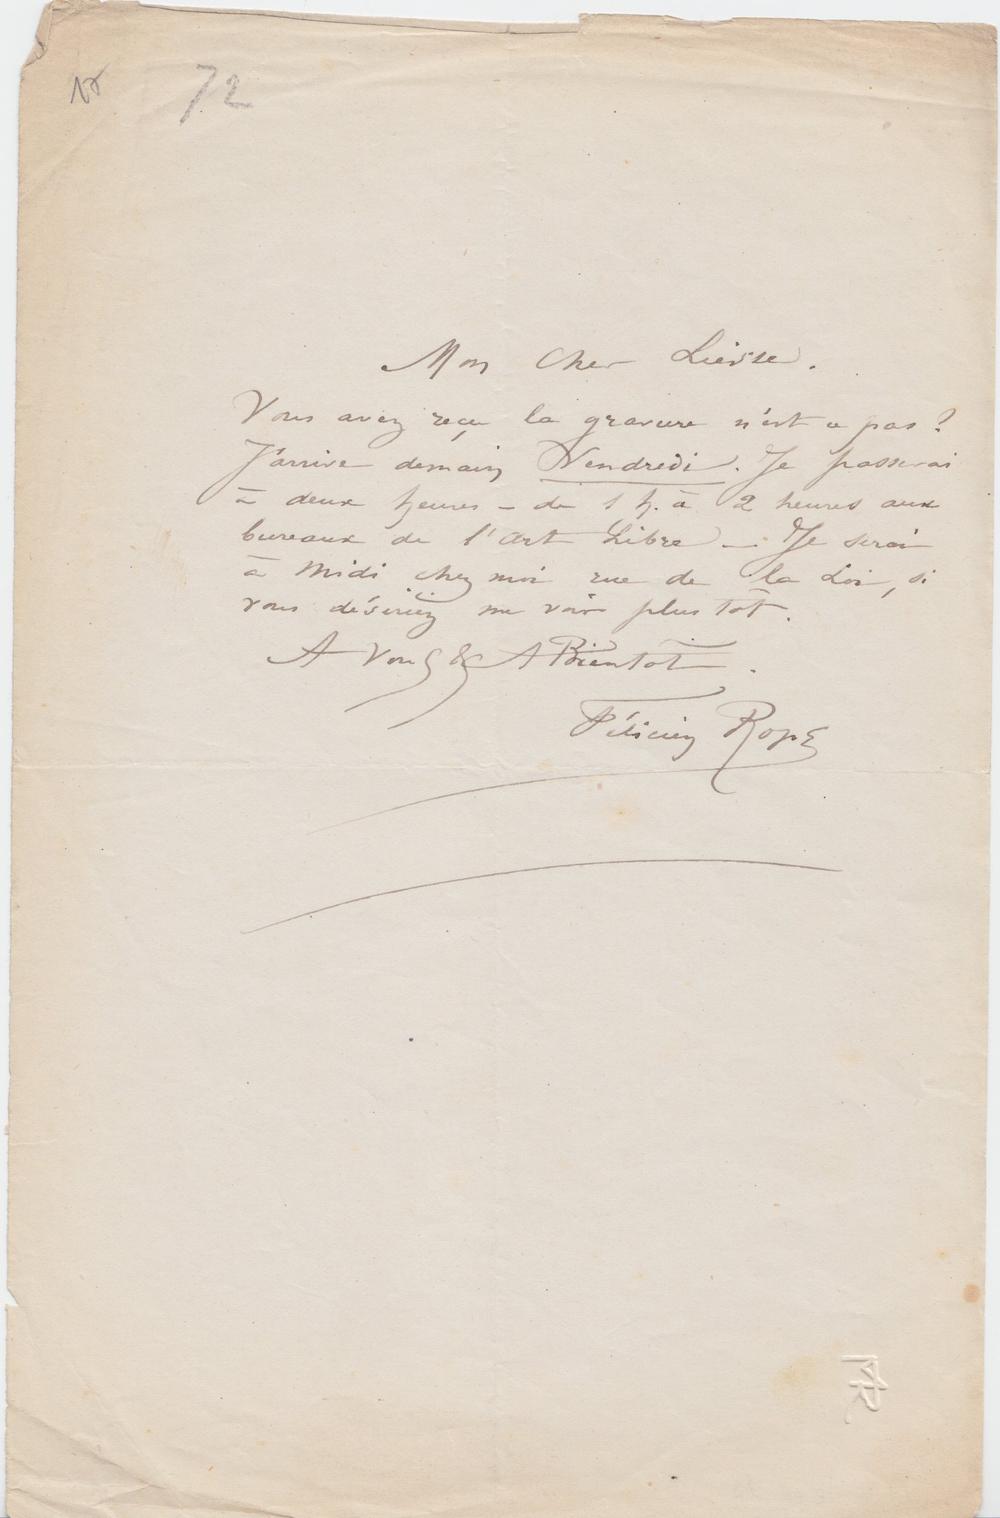 72
Mon Cher Liesse.
Vous avez reçu la gravure n'est ce pas?
J'arrive demain Vendredi. Je passerai
à deux heures – de 1 h. à 2 heures aux
bureaux de l'Art Libre – Je serai
à Midi chez moi rue de la Loi, si
vous désiriez me voir plus tôt.
A Vous & A Bientôt.
Félicien Rops